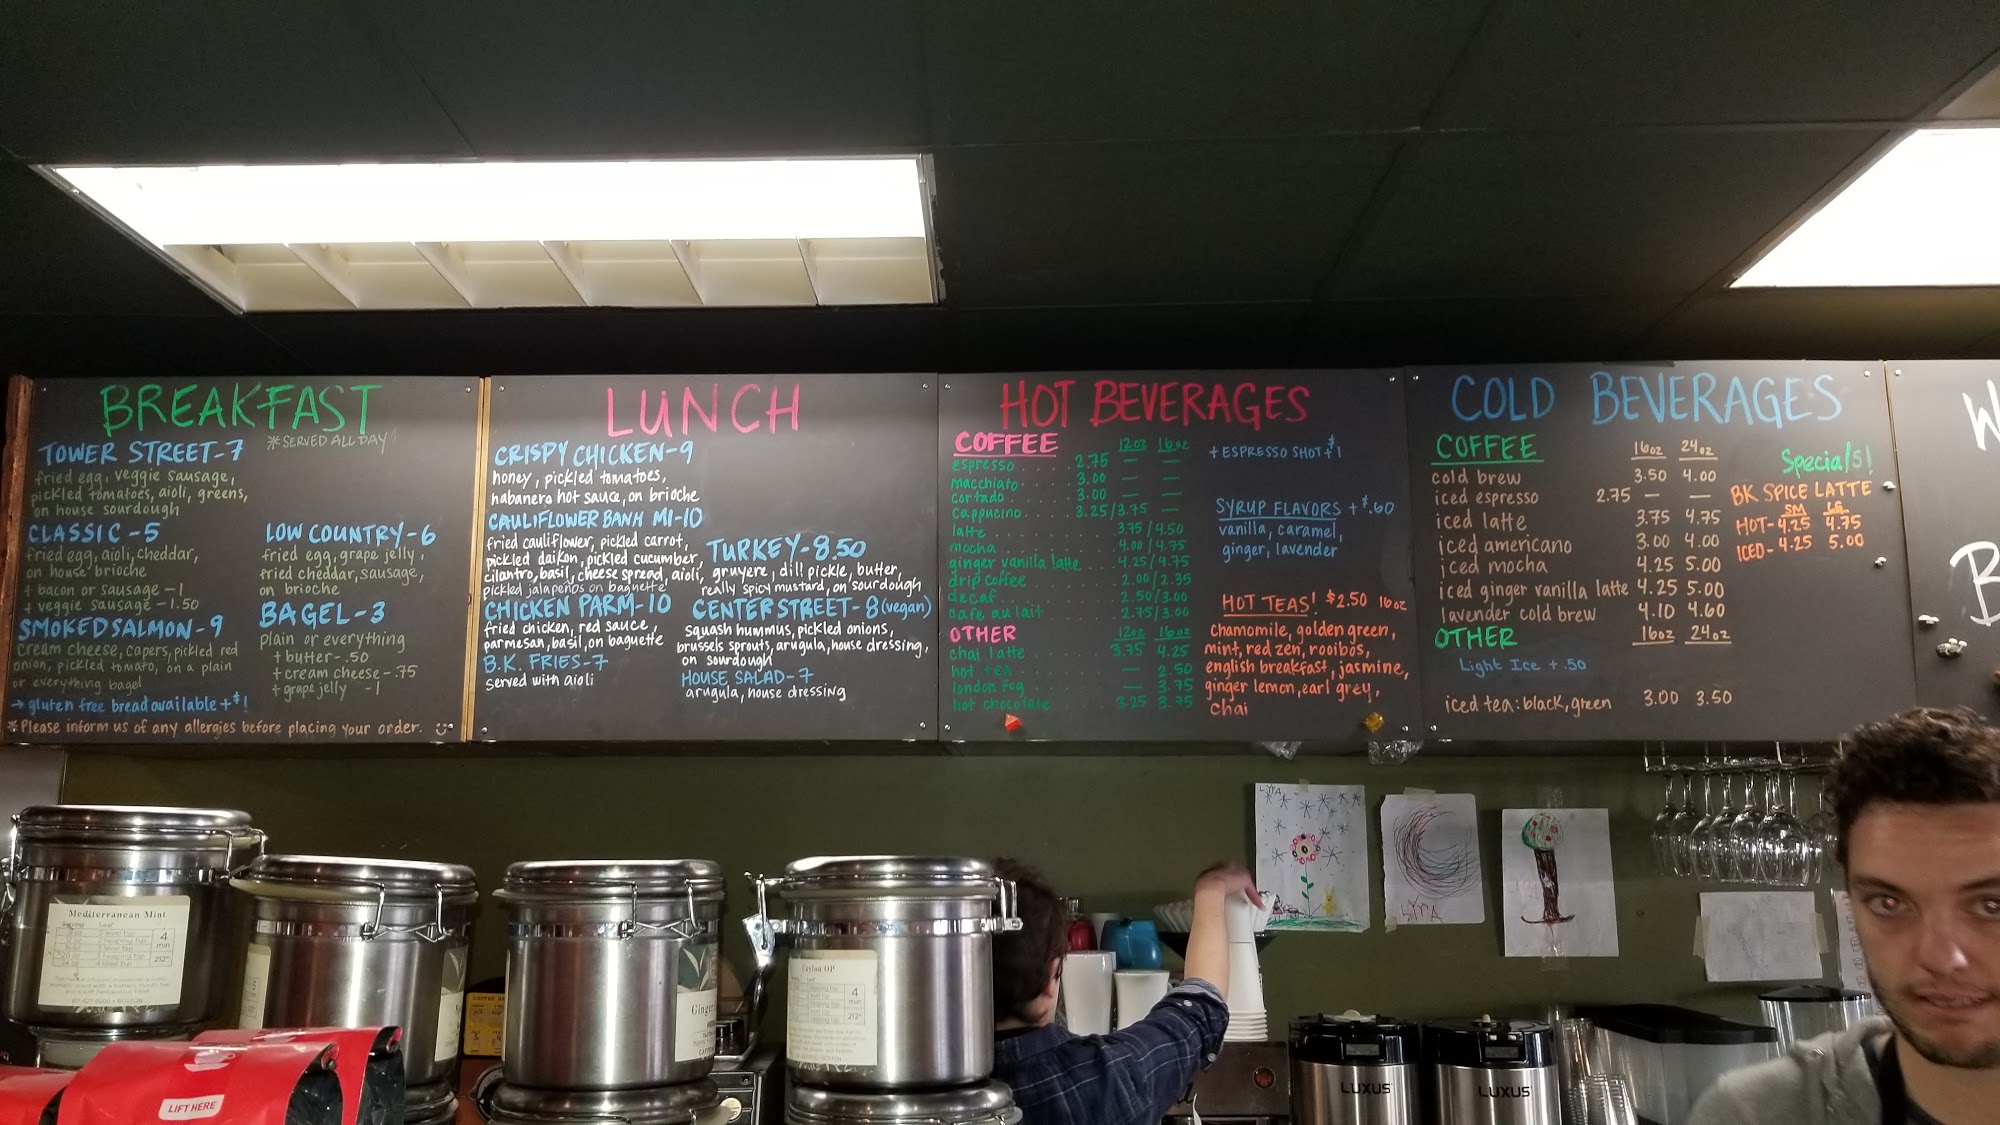 BREAKFAST
TOWER STREET-7
*SERVED ALL DAY
fried egg, veggie sausage,
pickled tomatoes, aioli, greens,
on house sourdough
CLASSIC-5
fried egg, aioli, cheddar,
on house brioche
+ bacon or sausage -1
+ veggie sausage -1.50
SMOKED SALMON-9
cream cheese, capers, pickled red
onion, pickled tomato, on a plain
or everything bagel
→ gluten free bread available +$1
LOW COUNTRY-6
fried egg, grape jelly,
fried cheddar, sausage,
on brioche
BAGEL-3
plain or everything
+ butter-.50
+ cream cheese-.75
+ grape jelly -1
*Please inform us of any allergies before placing your order.
LUNCH
CRISPY CHICKEN-9
honey, pickled tomatoes,
habanero hot sauce, on brioche
CAULIFLOWER BANH MI-10
fried cauliflower, pickled carrot,
pickled daikon, pickled cucumber,
cilantro, basil, cheese spread, aioli,
pickled jalapeños on baguette
CHICKEN PARM-10
fried chicken, red sauce,
parmesan, basil, on baguette
B.K. FRIES-7
served with aioli
TURKEY-8.50
gruyere, dill pickle, butter,
really spicy mustard, on sourdough
CENTER STREET-8 (vegan)
squash hummus, pickled onions,
brussels sprouts, arugula, house dressing,
on sourdough
HOUSE SALAD-7
arugula, house dressing
HOT BEVERAGES
COFFEE 12oz 16oz
espresso.... 2.75 — —
macchiato... 3.00 — —
cortado.... 3.00 — —
cappucino... 3.25/3.75 —
latte...... 3.75/4.50
mocha...... 4.00/4.75
ginger vanilla latte... 4.25/4.75
drip coffee 2.00/2.35
decaf...... 2.50/3.00
cafe au lait 2.75/3.00
OTHER 12oz 16oz
chai latte.... 3.75 4.25
hot tea..... — 2.50
london fog.... — 3.75
hot chocolate.... 3.25 3.75
+ ESPRESSO SHOT +$1
SYRUP FLAVORS +$.60
vanilla, caramel,
ginger, lavender
HOT TEAS! $2.50 16oz
chamomile, golden green,
mint, red zen, rooibos,
english breakfast, jasmine,
ginger lemon, earl grey,
chai
COLD BEVERAGES
COFFEE 16oz 24oz
cold brew 3.50 4.00
iced espresso 2.75 — —
iced latte 3.75 4.75
iced americano 3.00 4.00
iced mocha 4.25 5.00
iced ginger vanilla latte 4.25 5.00
lavender cold brew 4.10 4.60
OTHER 16oz 24oz
Light Ice +.50
iced tea: black, green 3.00 3.50
Specials!
BK SPICE LATTE
SM LG
HOT- 4.25 4.75
ICED- 4.25 5.00
W
B
LYRA
LYRA
Mediterranean Mint
4
min
212°
Ginger
Ceylon OP
4
min
212°
LIFT HERE
LUXUS
LUXUS